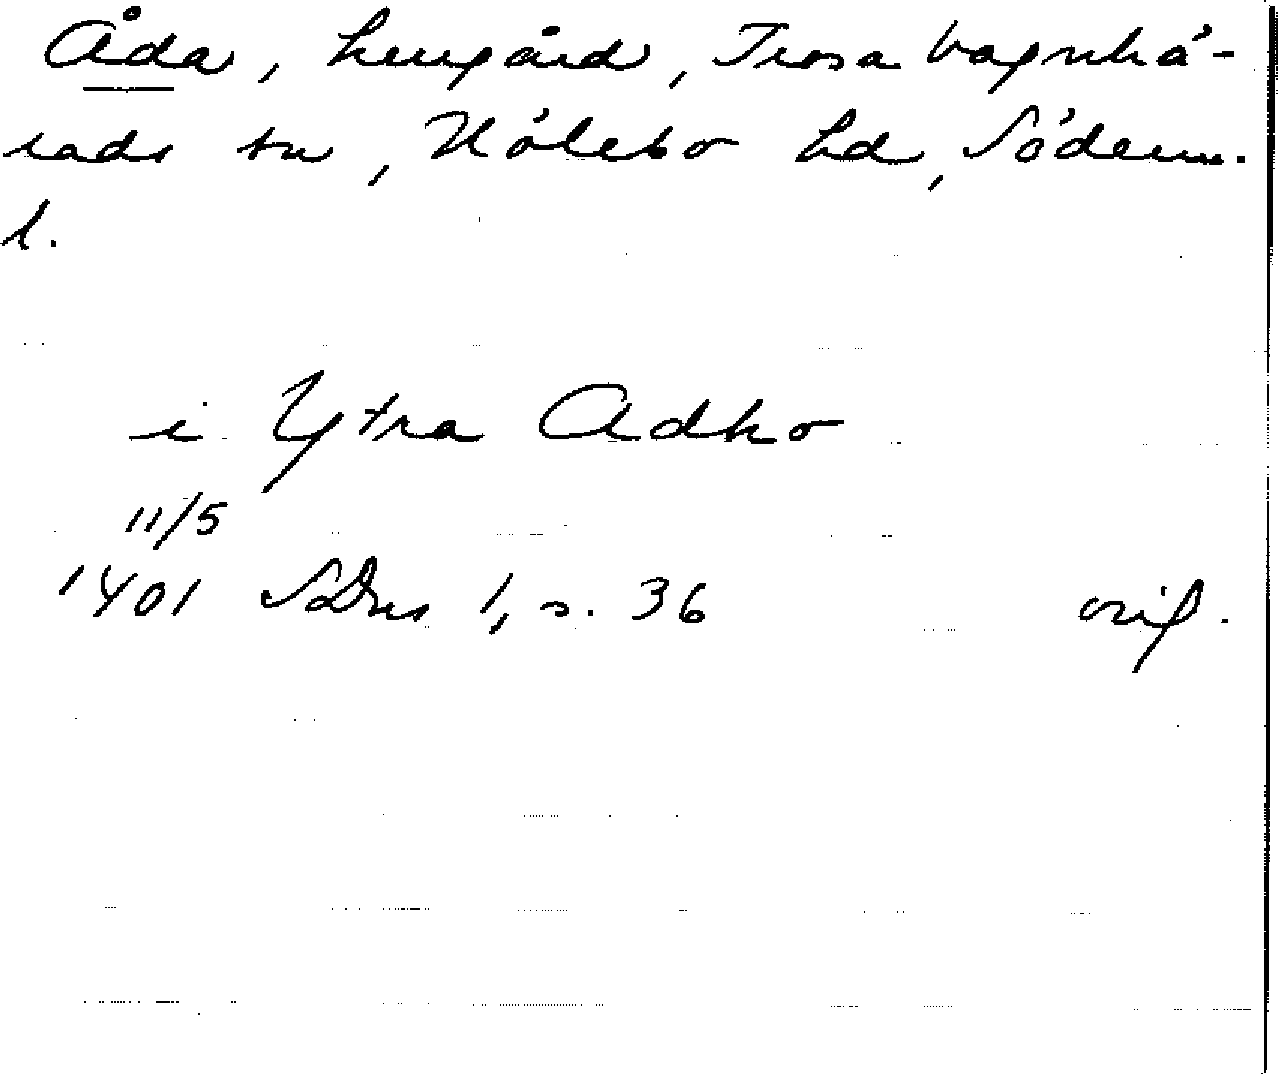 Åda, herrgård, Trosa Vagnhä-
rads sn, Hölebo hd, Söderm.
l.
i Ytra Adho
11/5
1401 SDns 1, s. 36 orig.